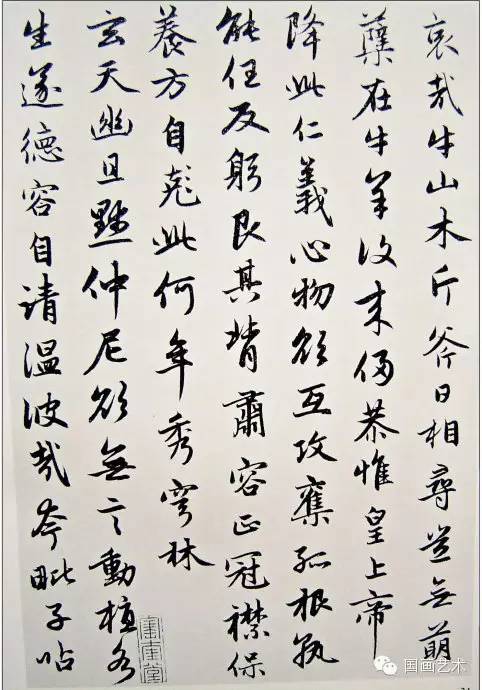 哀哉牛山木斤斧日相尋豈無萌
蘖在牛羊復来侵恭惟皇上帝
降此仁義心物欲互攻奪孤根孰
能任反躬艮其背肅容正冠襟保
養方自此何年秀穹林
玄天幽且默仲尼欲無言動植各
生遂德容自清温彼哉夸毗子呫
国画艺术